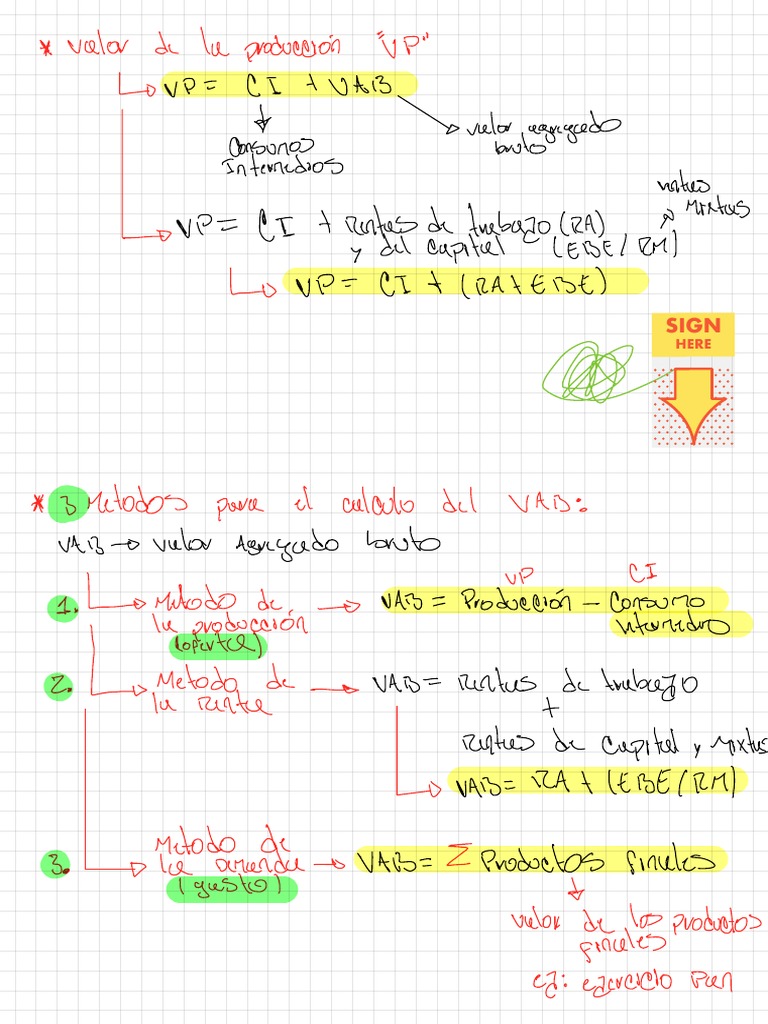 * Valor de la producción "VP"
VP = CI + VAB
Consumos
Intermedios
valor agregado
bruto
rentas
mixtas
VP = CI + Rentas de trabajo (RA)
y del capital (EBE/RM)
VP = CI + (RA + EBE)
SIGN
HERE
* 3 Metodos para el calculo del VAB:
VAB → Valor Agregado bruto
VP CI
1. Metodo de → VAB = Producción - Consumo
la producción Intermedio
(oferta)
2. Metodo de → VAB = rentas de trabajo
la renta +
Rentas de Capital y Mixtas
VAB = RA + (EBE/RM)
3. Metodo de
la Demanda → VAB = Σ Productos finales
(gasto)
valor de los productos
finales
ej: ejercicio Pan